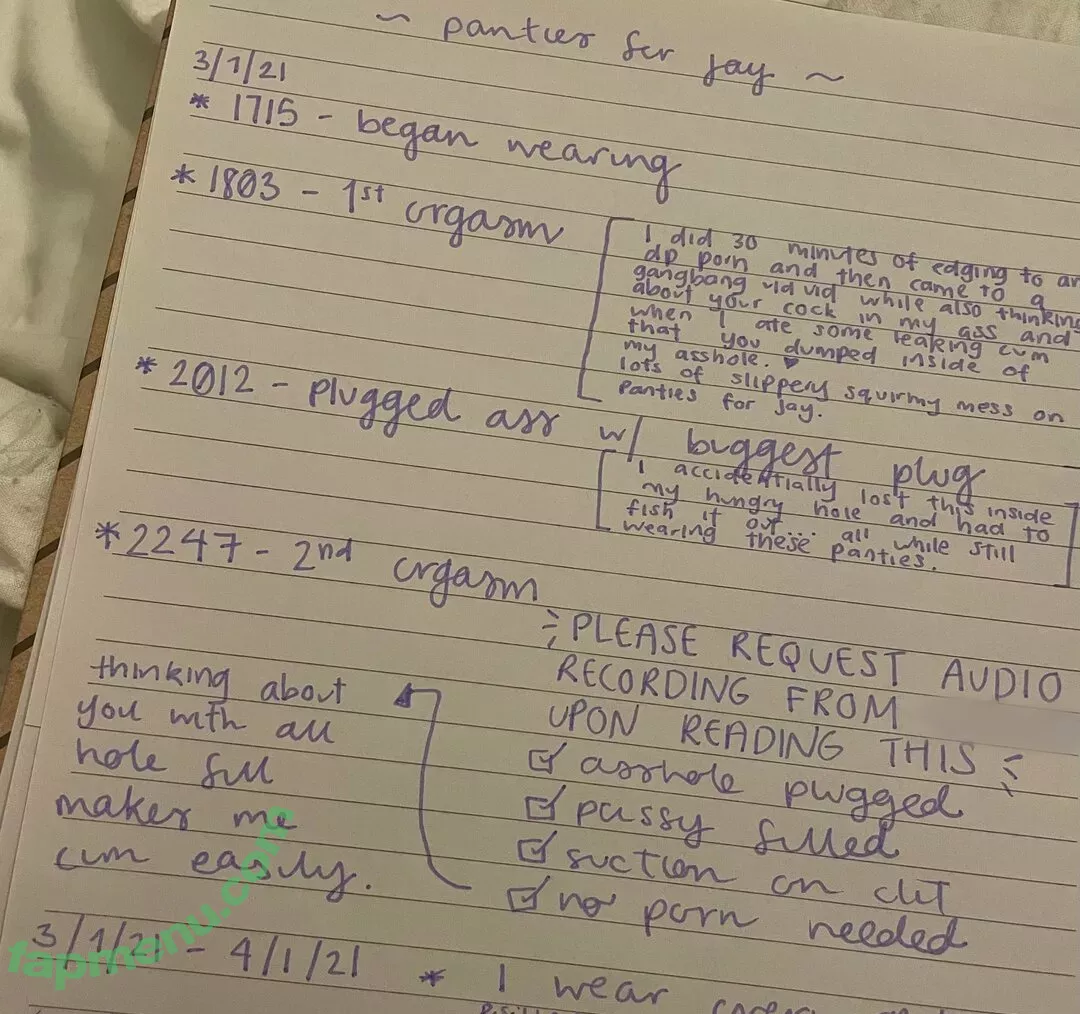 ~ panties for Jay ~
3/1/21
* 1715 - began wearing
* 1803 - 1st orgasm
I did 30 minutes of edging to an
dp porn and then came to a
gangbang vid vid while also thinking
about your cock in my ass and
when I ate some leaking cum
that you dumped inside of
my asshole. ♥
lots of slippery squirmy mess on
panties for Jay.
* 2012 - plugged ass w/ biggest plug
I accidentially lost this inside
my hungry hole and had to
fish it out... all while still
wearing these panties.
* 2247 - 2nd orgasm
PLEASE REQUEST AUDIO
RECORDING FROM
UPON READING THIS
☑ asshole plugged
☑ pussy filled
☑ suction on clit
☑ no porn needed
thinking about
you with all
hole full
makes me
cum easily.
3/1/21 - 4/1/21 * I wear
fapmenu.com